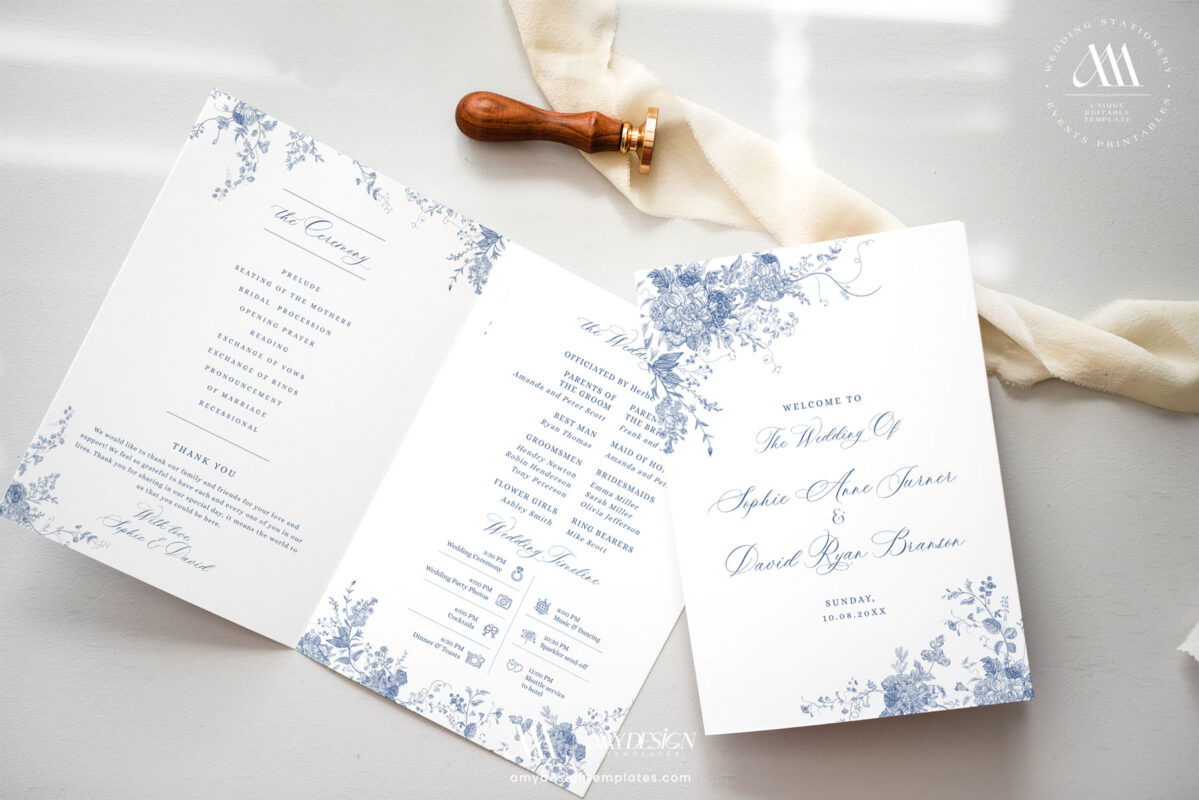 the Ceremony
PRELUDE
SEATING OF THE MOTHERS
BRIDAL PROCESSION
OPENING PRAYER
READING
EXCHANGE OF VOWS
EXCHANGE OF RINGS
PRONOUNCEMENT
OF MARRIAGE
RECESSIONAL
THANK YOU
We would like to thank our family and friends for your love and
support! We feel so grateful to have each and every one of you in our
lives. Thank you for sharing in our special day, it means the world to
us that you could be here.
With love,
Sophie & David
the Wedd
OFFICIATED by Herb
PARENTS OF
THE GROOM
Amanda and Peter Scott
BEST MAN
Ryan Thomas
GROOMSMEN
Hendry Newton
Robin Henderson
Tony Peterson
FLOWER GIRLS
Ashley Smith
PAREN
THE BR
Frank and
MAID OF HO
Amanda and Pet
BRIDESMAIDS
Emma Miller
Sarah Miller
Olivia Jefferson
RING BEARERS
Mike Scott
Wedding Timeline
3:30 PM
Wedding Ceremony
4:00 PM
Wedding Party Photos
6:00 PM
Cocktails
6:30 PM
Dinner & Toasts
8:00 PM
Music & Dancing
10:30 PM
Sparkler send-off
11:00 PM
Shuttle service
to hotel
WELCOME TO
The Wedding Of
Sophie Anne Turner
&
David Ryan Branson
SUNDAY,
10.08.20XX
WEDDING STATIONERY
UNIQUE
EDITABLE
TEMPLATE
EVENTS PRINTABLES
AMYDESIGN
TEMPLATES
amydesigntemplates.com